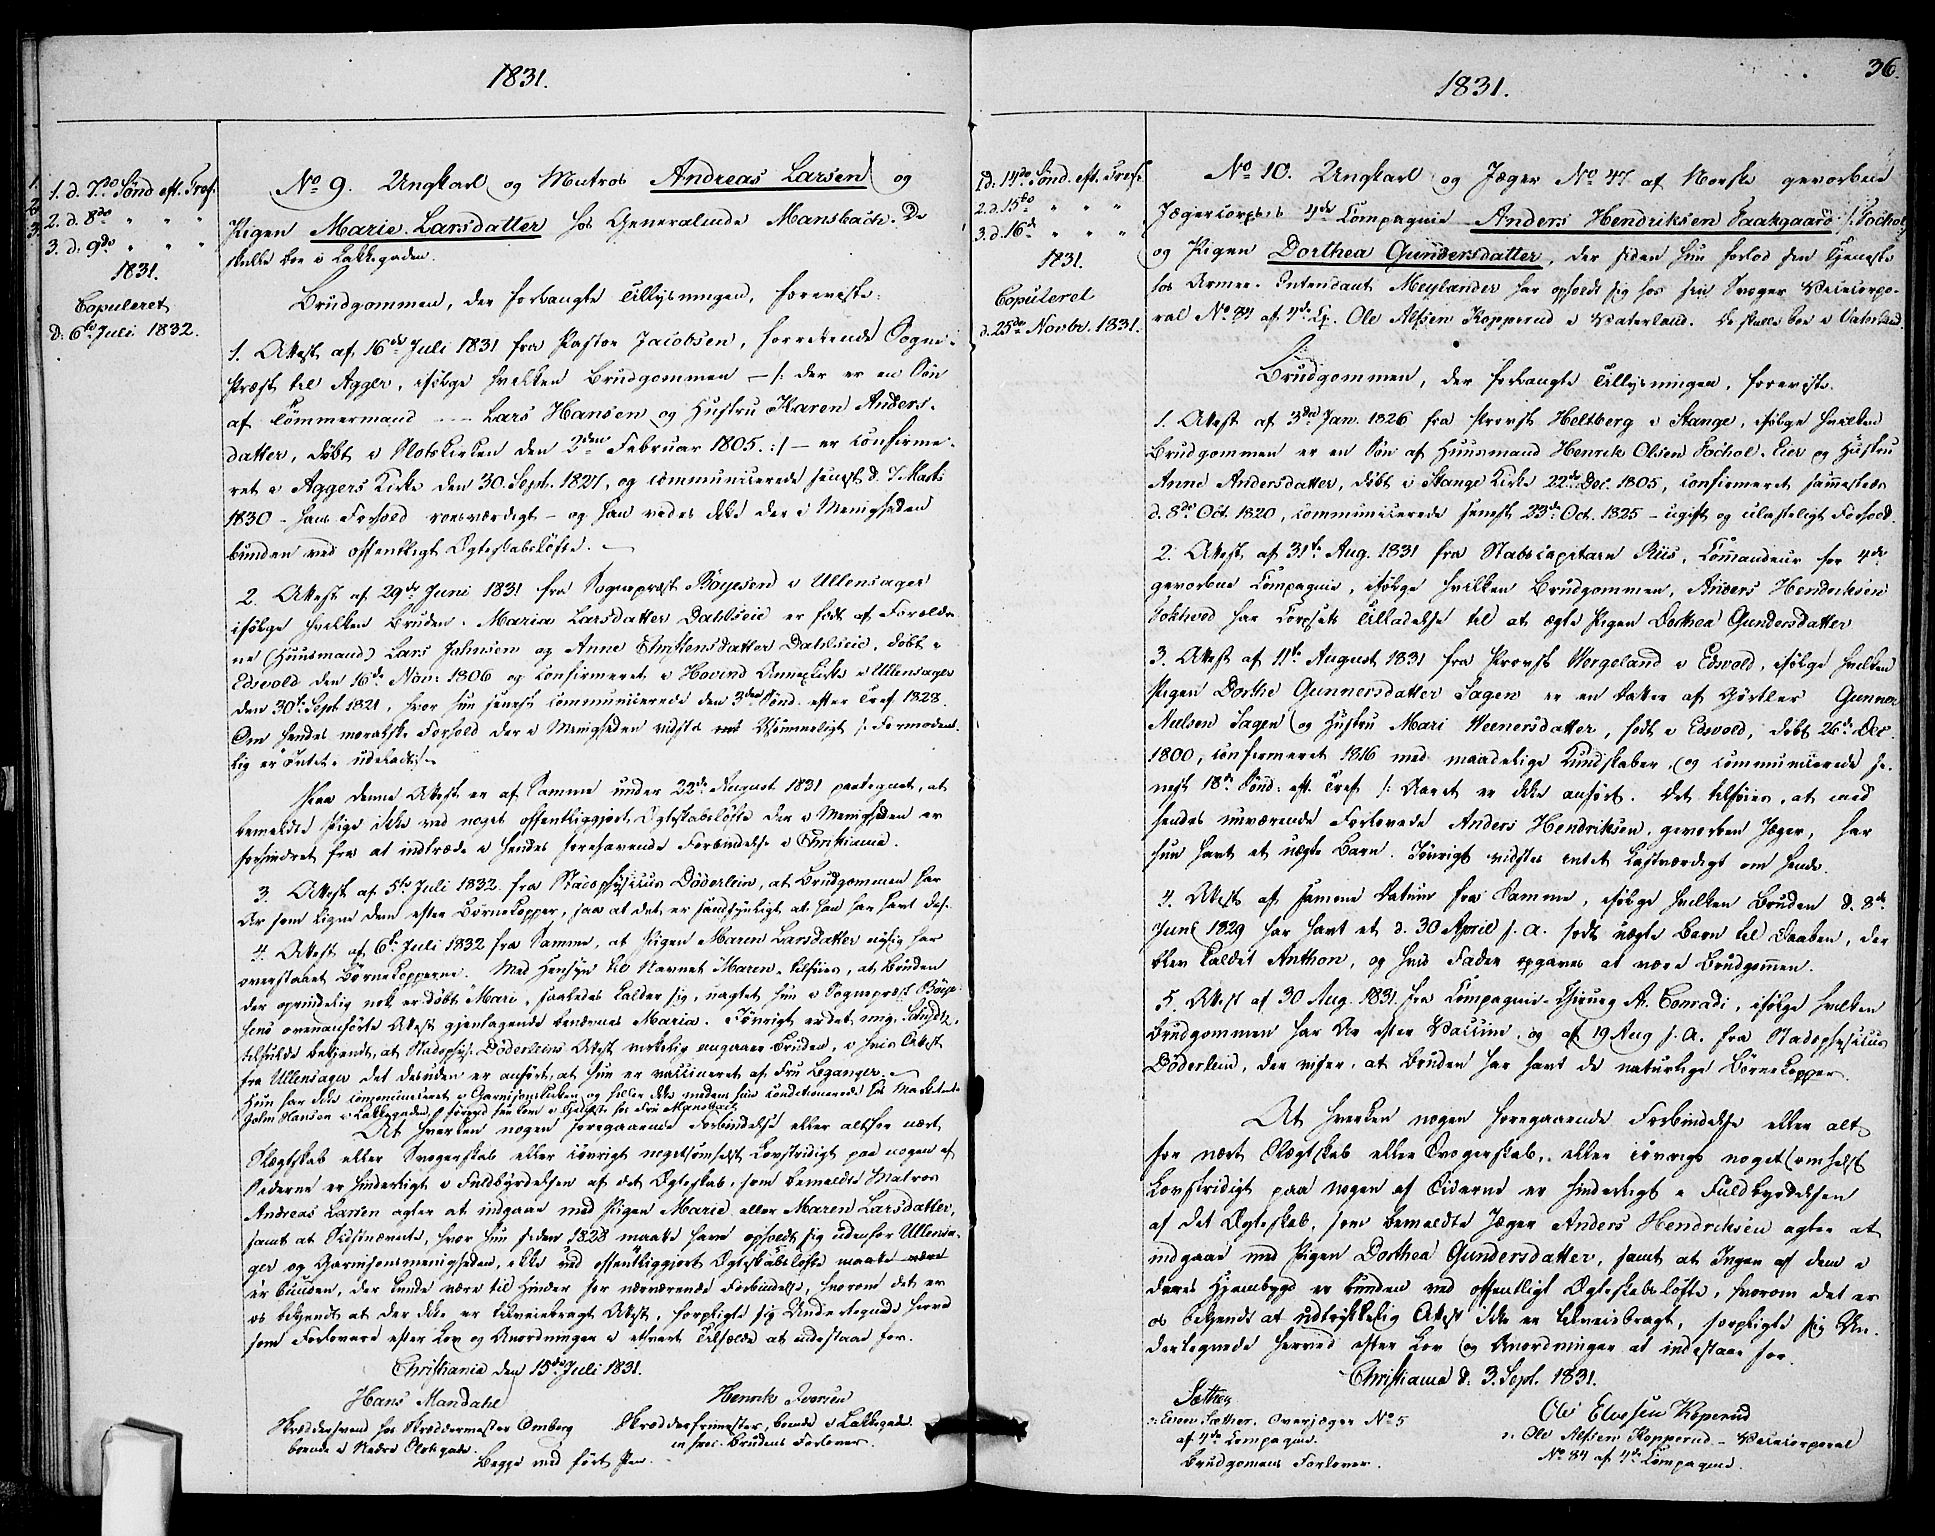 1831.
1. d. 7de Sønd eft. Tref.
2. d. 8de " " "
3. d. 9de " " "
1831.
Copuleret
D. 6te Juli 1832.
No 9. Ungkarl og Matros Andreas Larsen og
Pigen Marie Larsdatter hos Generalinde Mansbach. De
skulle boe i Lakkegaden.
Brudgommen, der forlangte Tillysningen, foreviste:
1. Attest af 16de Juli 1831 fra Pastor Jacobsen, forrettende Sogne-
præst til Agger, ifølge hvilken Brudgommen — /: der er en Søn
af Tømmermand — Lars Hansen og Hustru Karen Anders-
datter, døbt i Slotskirken den 3den Februar 1805. :/ — er confirme-
ret i Aggers Kirke den 30. Sept. 1827, og communicerede senest d. 7 Marts
1830 - hans Forhold roesværdigt - og han vides ikke der i Menigheden
bunden ved offentligt Ægteskabsløfte. —
2. Attest af 29de Juni 1831 fra Sognepræst Boyesen i Ullensager
ifølge hvilken Bruden. Maria Larsdatter Dahlseie er født af Forældre-
ne (Huusmand) Lars Johnsen og Anne Christensdatter Dahlseie, døbt i
Edsvold den 16de Nov: 1806 og confirmeret i Hovind Annexkirke i Ullensager
den 30te Sept. 1821, hvor hun senest communicerede den 3die Sønd. efter Tref. 1828.
Om hendes moralske Forhold der i Menigheden vidstes Uskimmeligt /: Formodent-
lig er Intet. udeladt :/ -
Paa denne Attest er af Samme under 22de August 1831 paategnet, at
bemeldte Pige ikke ved noget offentliggjort Ægteskabsløfte der i Menigheden er
forhindret fra at indtræde i hendes forehavende Forbindelse i Christiania.
3. Attest af 5te Juli 1832. fra Stadsphysicus Döderlein, at Brudgommen har
Ar som ligne dem efter Børnekopper, saa at det er sandsynligt at han har havt des.
4. Attest af 6te Juli 1832 fra Samme, at Pigen Maren Larsdatter nylig har
overstaaet Børnekopperne. Med Hensyn til Navnet Maren tilføies, at Bruden
der oprindelig nok er døbt Mari, saaledes kalder sig, uagtet hun i Sognepræst Boye-
sens ovenanførte Attest gjentagende benævnes Maria. Iøvrigt er det mig
tilfulde bekjendt, at Stadsphys: Döderleins Attest virkelig angaaer Bruden, i hvis Attest
fra Ullensager det desuden er anført, at hun er vaccineret af Fru Leganger. —
Hun har ikke communiceret i Garnisonskirken og heller ikke medens hun conditionerede hos Marketent.
John Hansen i Lakkegaden, førend hun kom i Tjeneste hos Fru Mansbach
At hverken nogen foregaaende Forbindelse eller altfor nært
Slægtskab eller Svogerskab eller iøvrigt nogetsomhelst Lovstridigt paa nogen af
Siderne er hinderligt i Fuldbyrdelsen af det Ægteskab, som bemeldte Matros
Andreas Larsen agter at indgaae med Pigen Marie eller Maren Larsdatter,
samt at Sidstnævnte, hvor hun siden 1828 maatte have opholdt sig udenfor Ullensa-
ger og Garnisonsmenigheden, ikke ved offentliggjort Ægteskabsløfte maatte være
er bunden, der kunde være til Hinder for nærværende Forbindelse, hvorom det er
os bekjendt at der ikke er tilveiebragt Attest, forpligte sig Undertegnede herved
som Forlovere efter Lov og Anordninger i ethvert Tilfælde at indestaae for.
Christiania den 15de Juli 1831.
Hans Mandahl
Skræddersvend hos Skræddermester Omberg
boende i Nedre Slotsgade.
Henrik Iversen
Skrædderfrimester, boende i Lakkegade
Brudens Forlover.
Begge med ført Pen.
1831.
36.
1. d. 14de Sønd. eft. Tref.
2. d. 15de " " "
3. d. 16de " " "
1831.
Copuleret
d. 25de Novbr. 1831.
No 10. Ungkarl og Jæger No 47 af Norske gevorbne
Jægercorpses 4de Compagnie Anders Hendriksen Taakgaard /: Tochol :/
og Pigen Dorthea Gundersdatter, der siden hun forlod sin Tjeneste
hos Armee-Intendant Meylænder har opholdt sig hos sin Svoger Vicecorpo-
ral No 84 af 4de Cp. Ole Alfsen Kopperud i Vaterland. De skulle boe i Vaterland.
Brudgommen, der forlangte Tillysningen, foreviste.
1. Attest af 3die Jan. 1826 fra Provst Heltberg i Stange, ifølge hvilken
Brudgommen er en Søn af Huusmand Henrik Olsen Tochol-Eier og Hustru
Anne Andersdatter, døbt i Stange Kirke 22de Dec. 1805, confirmeret sammesteds
d. 8de Oct. 1820, communicerede senest 23de Oct. 1825 - ugift og ulasteligt Forhold.
2. Attest af 31te Aug. 1831 fra Stabscapitain Riis, Commandeur for 4de
gevorbne Compagnie, ifølge hvilken Brudgommen, Anders Hendriksen
Tokhoed har Corpsets Tilladelse til at ægte Pigen Dorthea Gundersdatter
3. Attest af 11te August 1831 fra Provst Wergeland i Edsvold, ifølge hvilken
Pigen Dorthe Gunnersdatter Sagen er en Datter af Gjørtler Gunner
Nielsen Sagen og Hustru Mari Weenersdatter, født i Edsvold, døbt 26de Dec.
1800, confirmeret 1816 med maadelige Kundskaber, og communicerede se-
nest 18de Sønd: eft. Tref /: Aaret er ikke anført. Det tilføies, at med
hendes nuværende Forlovede Anders Hendriksen, gevorben Jæger, har
hun havt et uægte Barn. Iøvrigt vidstes intet Lastværdigt om hende.
4. Attest af samme Datum fra Samme, ifølge hvilken Bruden d. 8de
Juni 1829 har havt et d. 30 April s. A. født uægte Barn til Daaben, der
blev kaldet Anthon, og hvis Fader opgaves at være Brudgommen.
5. Attest af 30 Aug. 1831. fra Compagnie-Chirurg A. Conradi, ifølge hvilken
Brudgommen har Ar efter Vaccine, og af 19 Aug s. A. fra Stadsphysicus
Döderlein, der viser, at Bruden har havt de naturlige Børnekopper.
At hverken nogen foregaaende Forbindelse eller alt
for nært Slægtskab eller Svogerskab, eller iøvrigt noget somhelst
Lovstridigt paa nogen af Siderne er hinderligt i Fuldbyrdelsen
af det Ægteskab, som bemeldte Jæger Anders Hendriksen agter at
indgaae med Pigen Dorthea Gundersdatter, samt at Ingen af dem i
deres Hjembygd er bunden ved offentligt Ægteskabsløfte, hvorom det er
os bekjendt at udtrykkelig Attest ikke er tilveiebragt, forpligte sig Un-
dertegnede herved efter Lov og Anordninger at indestaae for.
Christiania d. 3. Sept. 1831.
Sæther
Sæther. Overjæger No 5
af 4de Compagnie.
Brudgommens Forlover.
Ole Elvesen Koperud
: Ole Alfsen Kopperud - Vicecorporal
No 84 af 4de Compagnie.